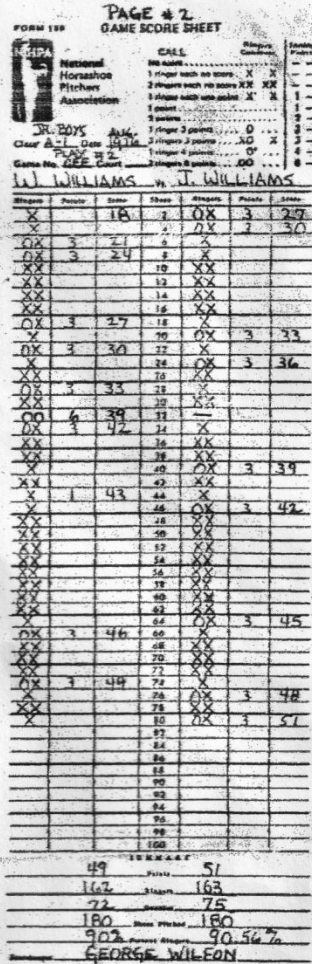 PAGE # 2
FORM 150 GAME SCORE SHEET
NHPA
National
Horseshoe
Pitchers
Association
CALL Ringers
No score
1 ringer each no score X X
2 ringers each no score XX XX
Ringer each one point X X
1 point
2 points
1 ringer 3 points O
3 ringers 3 points XO X
1 ringer 4 points O
2 ringers 6 points OO
JR. BOYS AUG.
Class A-1 Date 1976
PLAY #2
Game No. Court
W. WILLIAMS vs. J. WILLIAMS
Ringers Points Score Shoes Ringers Points Score
X 18 2 OX 3 27
X 4 OX 3 30
OX 3 21 6 X
OX 3 24 8 X
XX 10 XX
XX 12 XX
XX 14 XX
XX 16 XX
OX 3 27 18 X
X 20 OX 3 33
OX 3 30 22 X
X 24 OX 3 36
XX 26 XX
OX 3 33 28 X
XX 30 XX
OO 6 39 32 —
OX 3 42 34 X
XX 36 XX
XX 38 XX
X 40 OX 3 39
XX 42 XX
X 1 43 44 X
X 46 OX 3 42
XX 48 XX
XX 50 XX
XX 52 XX
XX 54 XX
XX 56 XX
XX 58 XX
XX 60 XX
XX 62 XX
X 64 OX 3 45
OX 3 46 66 X
XX 68 XX
XX 70 XX
XX 72 XX
OX 3 49 74 X
X 76 OX 3 48
XX 78 XX
X 80 OX 3 51
82
84
86
88
90
92
94
96
98
100
SUMMARY
49 Points 51
162 Ringers 163
72 Doubles 75
180 Shoes Pitched 180
90% Percent Ringers 90.56%
Scorekeeper GEORGE WILSON